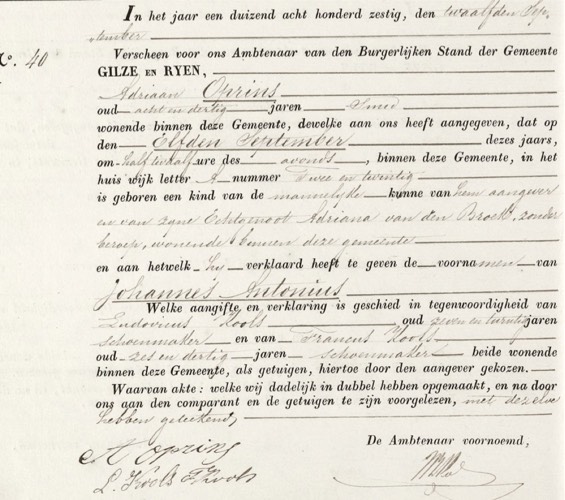 In het jaar een duizend acht honderd zestig, den twaalfden Sep-
tember
No. 40
Verscheen voor ons Ambtenaar van den Burgerlijken Stand der Gemeente
GILZE EN RYEN,
Adriaan Oprins
oud achtendertig jaren Smid
wonende binnen deze Gemeente, dewelke aan ons heeft aangegeven, dat op
den Elfden September dezes jaars,
om half twaalf ure des avonds, binnen deze Gemeente, in het
huis wijk letter A nummer Twee en twintig
is geboren een kind van de mannelyke kunne van hem aangever
en van zyne Echtgenoot Adriana van den Broek, zonder
beroep, wonende binnen deze gemeente
en aan hetwelk hy verklaard heeft te geven de voornamen van
Johannes Antonius
Welke aangifte en verklaring is geschied in tegenwoordigheid van
Ludovicus Kools oud zeven en twintig jaren
schoenmaker en van Francus Kools
oud zes en dertig jaren schoenmaker beide wonende
binnen deze Gemeente, als getuigen, hiertoe door den aangever gekozen.
Waarvan akte: welke wij dadelijk in dubbel hebben opgemaakt, en na door
ons aan den comparant en de getuigen te zijn voorgelezen, met dezelve
hebben geteekend,
De Ambtenaar voornoemd,
A Oprins
L. Kools F Kools